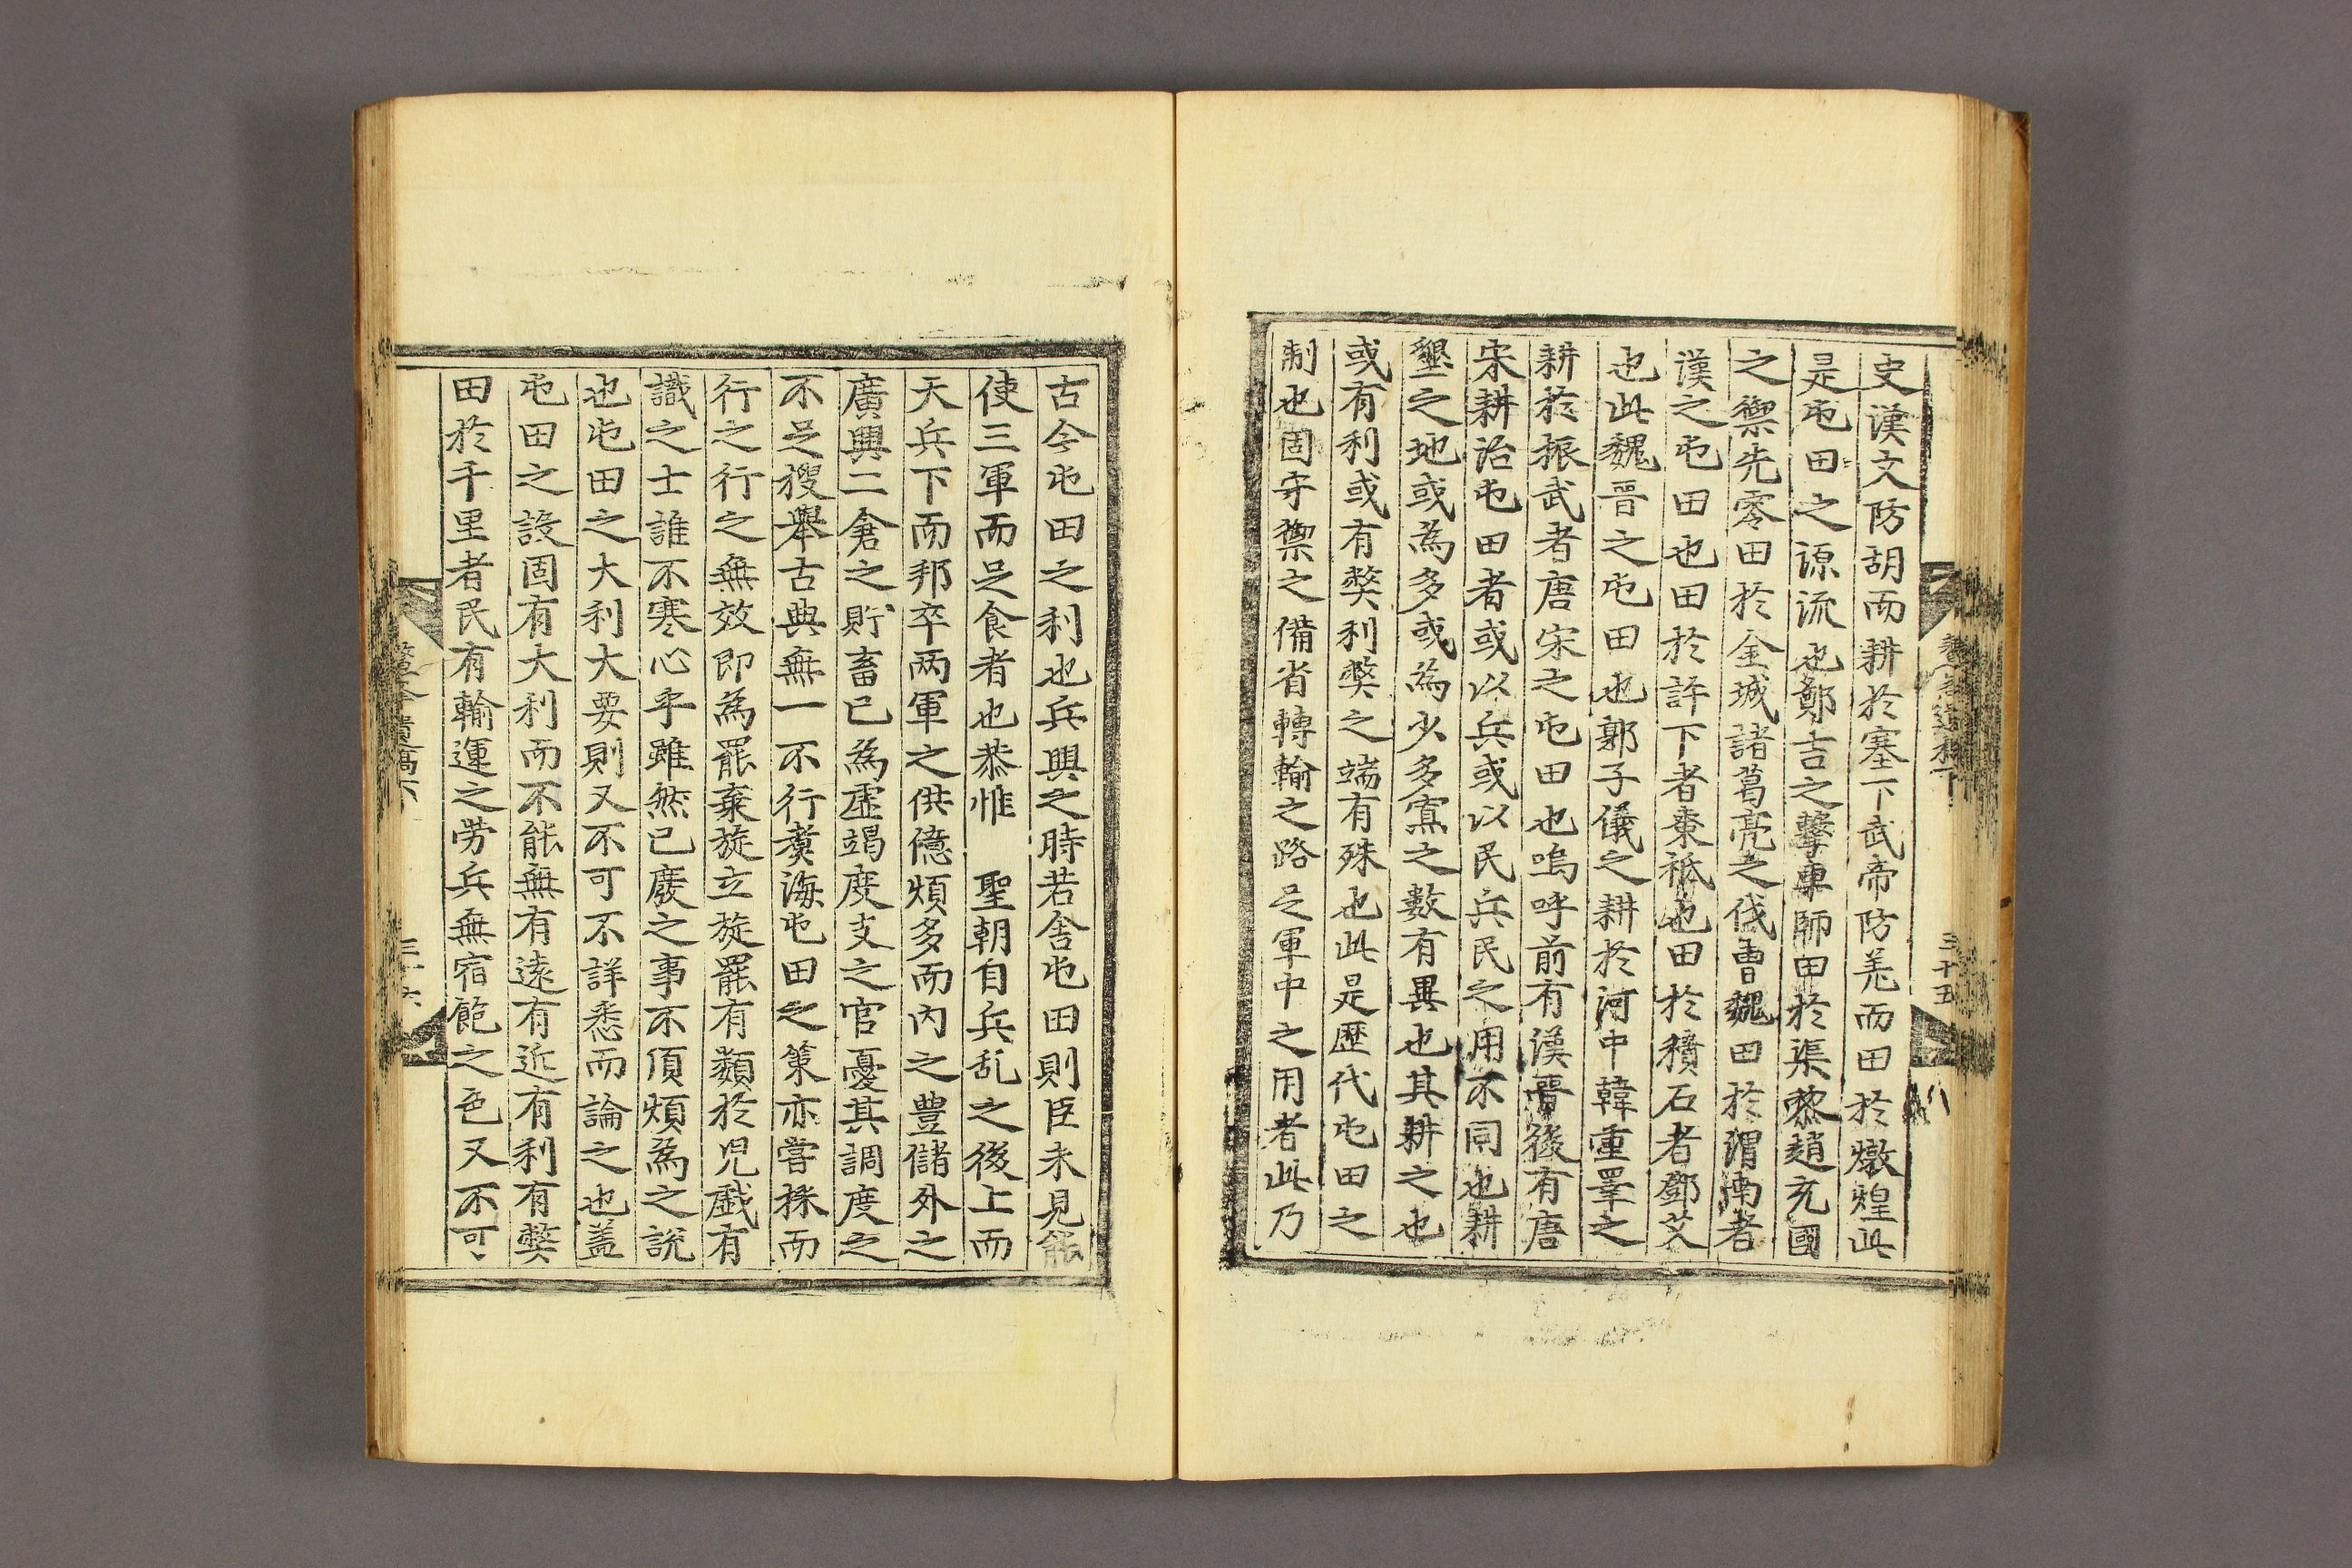 史漢文防胡而耕於塞下武帝防羌而田於燉煌此
是屯田之源流也鄭吉之擊車師田於渠黎趙充國
之禦先零田於金城諸葛亮之伐曹魏田於渭南者
漢之屯田也田於許下者棗祗也田於積石者鄧艾
也此魏晉之屯田也郭子儀之耕於河中韓重華之
耕於振武者唐宋之屯田也嗚呼前有漢晉後有唐
宋耕治屯田者或以兵或以民兵民之用不同也耕
墾之地或爲多或爲少多寡之數有異也其耕之也
或有利或有弊利弊之端有殊也此是歷代屯田之
制也固守禦之備省轉輸之路足軍中之用者此乃
三十五
古今屯田之利也兵興之時若舍屯田則臣未見能
使三軍而足食者也恭惟 聖朝自兵乱之後上而
天兵下而邦卒兩軍之供億煩多而內之豊儲外之
廣興二倉之貯畜已爲虛竭度支之官憂其調度之
不足搜擧古典無一不行募海屯田之策亦嘗採而
行之行之無效即爲罷棄旋立旋罷有類於兒戱有
識之士誰不寒心乎雖然已廢之事不湏煩爲之說
也屯田之大利大要則又不可不詳悉而論之也盖
屯田之設固有大利而不能無有遠有近有利有弊
田於千里者民有輸運之勞兵無宿飽之色又不可
三十六